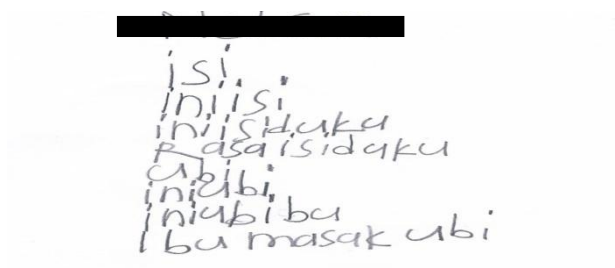 isi.
ini isi
ini isi duku
Rasa isi duku
ubi
ini ubi,
ini ubi bu
Ibu masak ubi